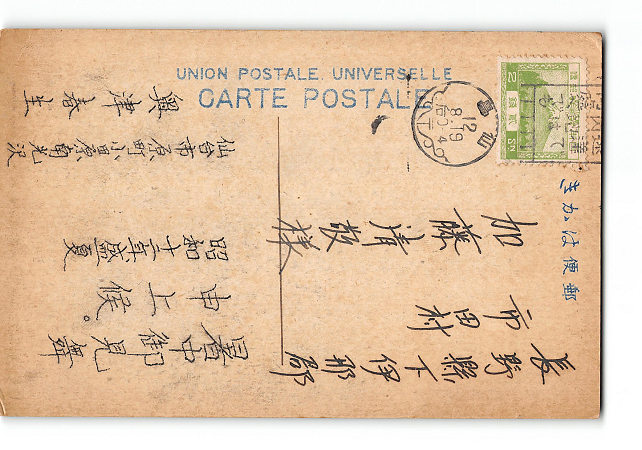 UNION POSTALE UNIVERSELLE
CARTE POSTALE
郵便はかき
長野縣下伊那郡
市田村
加藤清 様
暑中御見舞
申上候。
昭和十二年盛夏
仙台市原町小田原南光沢
興津春
12
8.19
2 SN